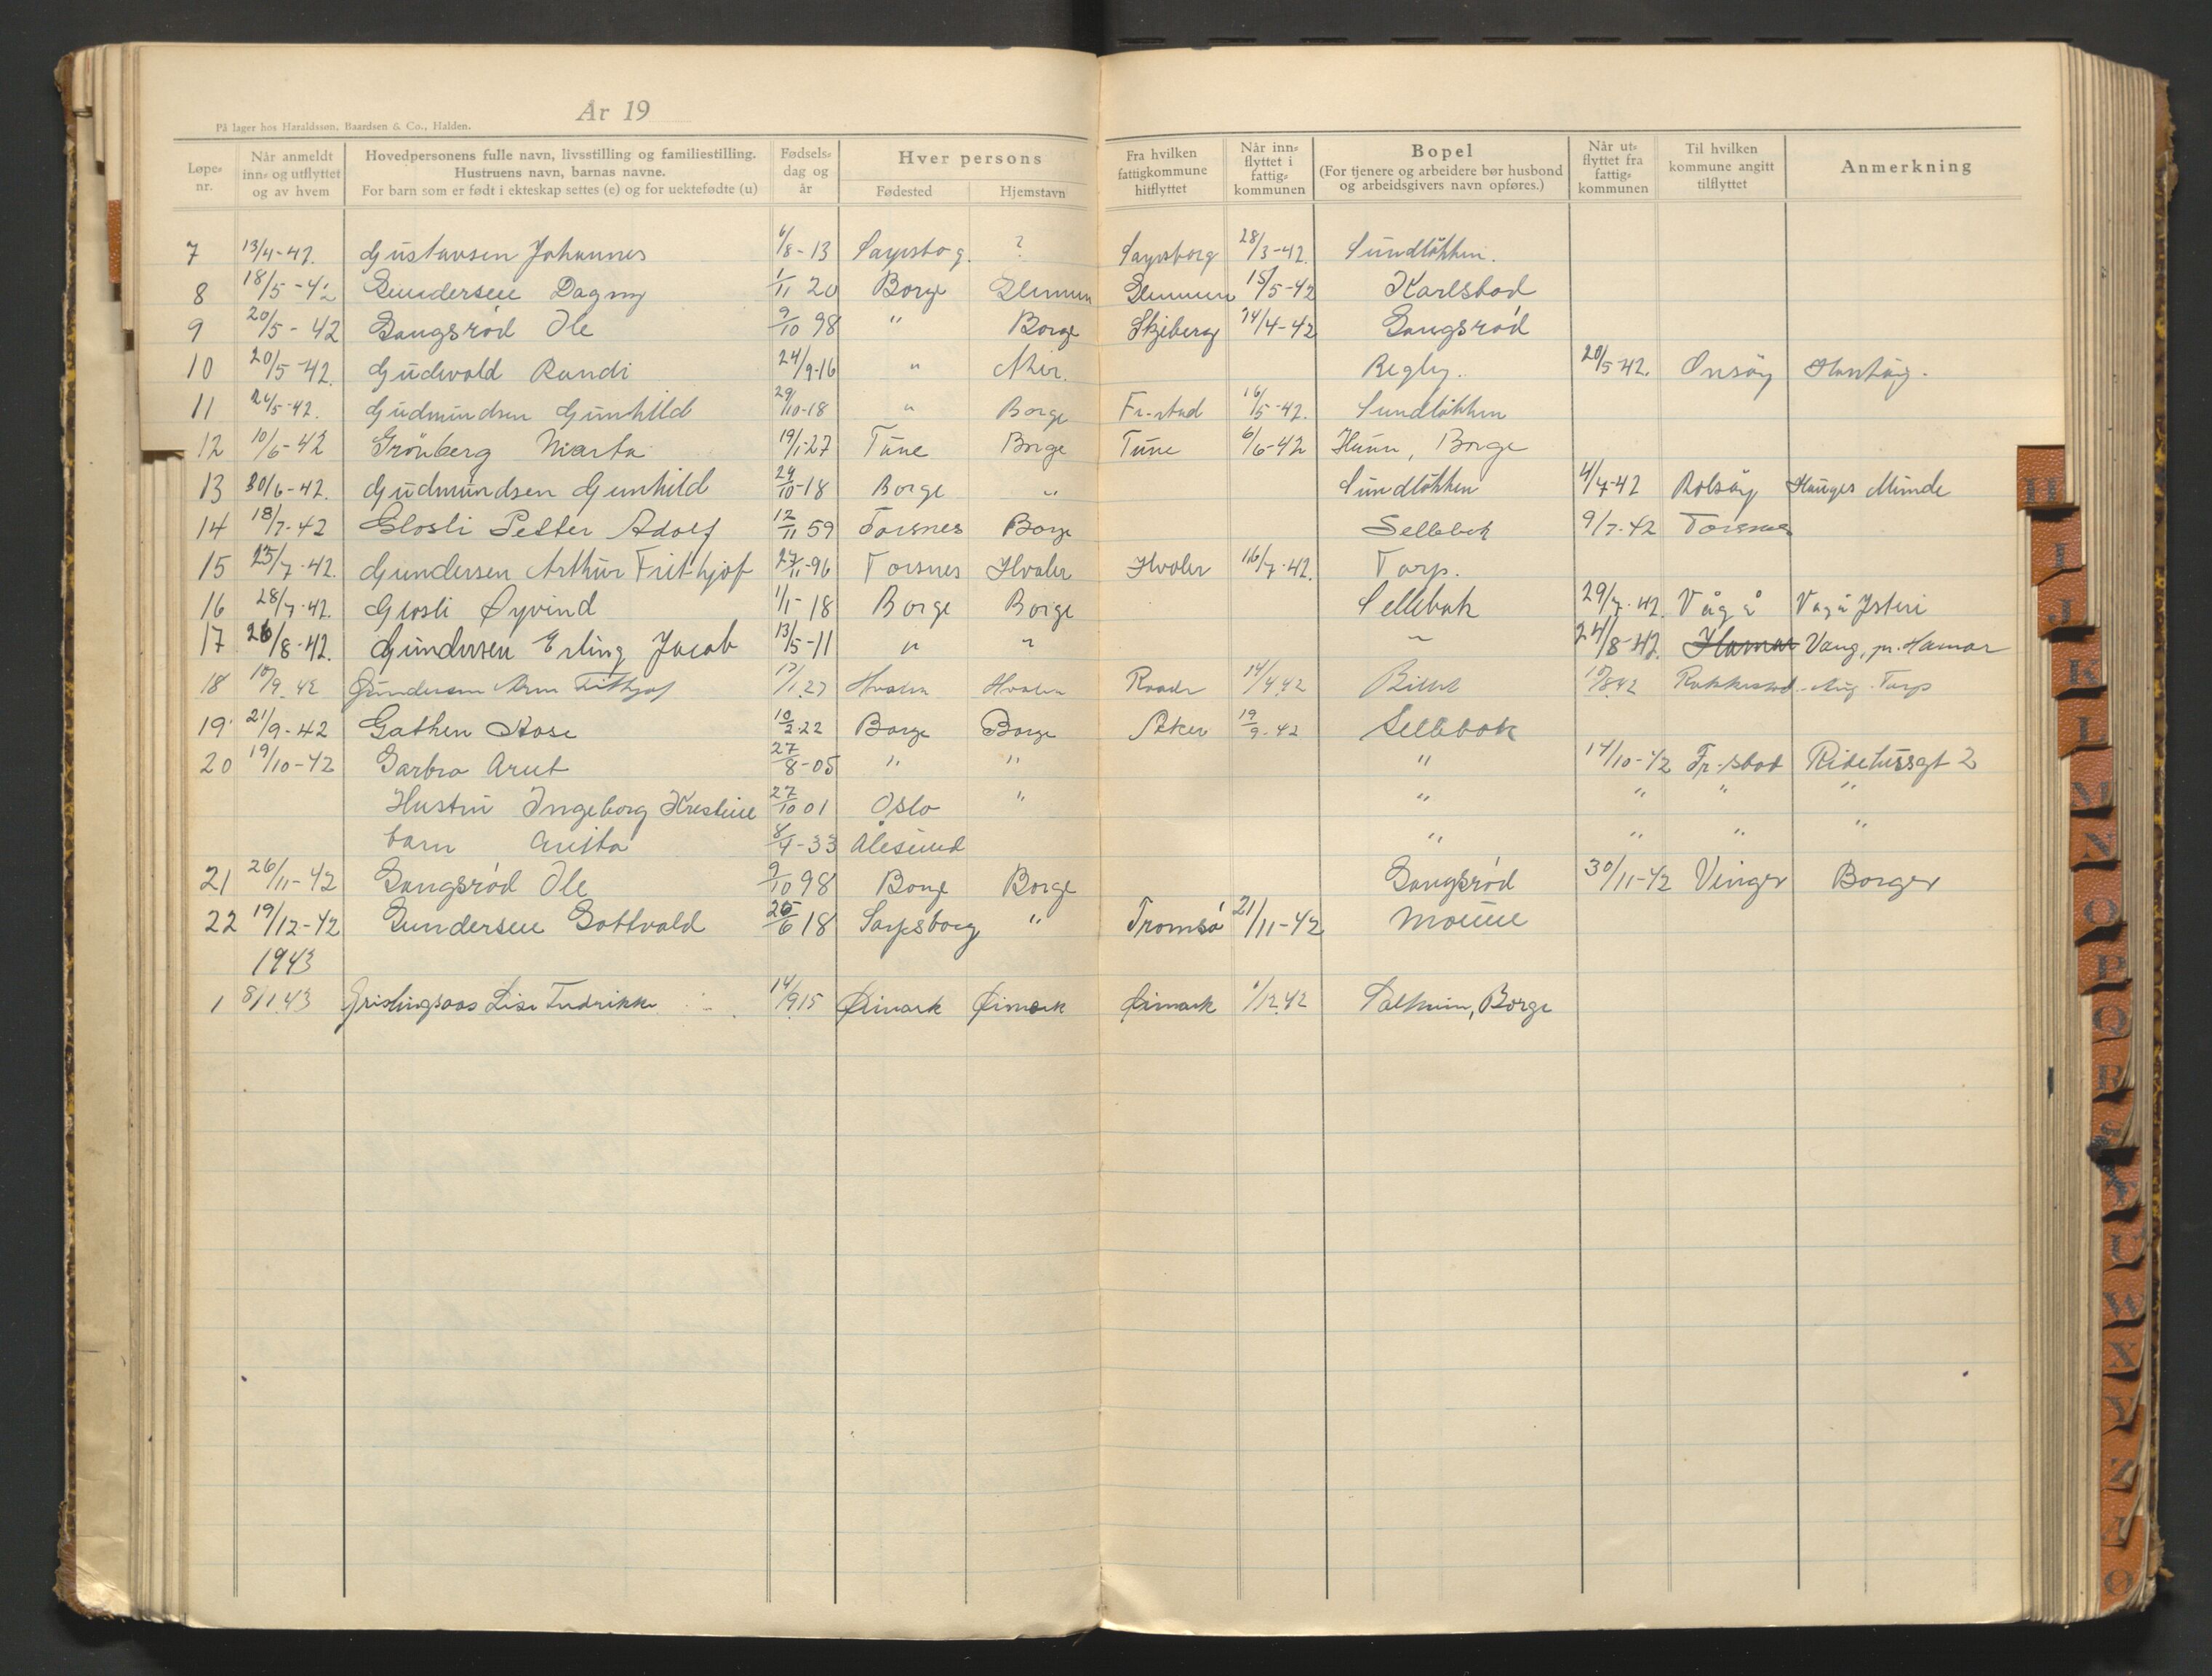 År 19
På lager hos Haraldssøn, Baardsen & Co., Halden.
Løpe-nr. Når anmeldt inn- og utflyttet og av hvem Hovedpersonens fulle navn, livsstilling og familiestilling. Hustruens navn, barnas navne. For barn som er født i ekteskap settes (e) og for uektefødte (u) Fødsels-dag og år Hver persons Fødested Hjemstavn Fra hvilken fattigkommune hitflyttet Når inn-flyttet i fattig-kommunen Bopel (For tjenere og arbeidere bør husbond og arbeidsgivers navn opføres.) Når ut-flyttet fra fattig-kommunen Til hvilken kommune angitt tilflyttet Anmerkning
7 13/4-42. Gustavsen Johannes 6/8-13 Sarpsborg. ? Sarpsborg 28/3-42. Sundløkken.
8 18/5-42 Gundersen Dagny 1/11 20 Borge Glemmen Glemmen 15/5-42 Karlsbad
9 20/5-42 Gangsrød Ole 9/10 98 " Borge Skjeberg 24/4-42 Gangsrød
10 20/5-42. Gudevold Randi 24/9-16 " Begby. 20/5-42. Onsøy
11 26/5-42. Gudmundsen Gunhild 29/10-18 " Borge Fr-stad 16/5-42. Sundløkken
12 10/6-42 Grönberg Marta 19/1-27 Tune Borge Tune 6/6-42 Hunn, Borge
13 30/6-42. Gudmundsen Gunhild 29/10-18 Borge " Sundløkken 4/7-42 Rolsøy Hauges Minde
14 18/7-42 Glosli Petter Adolf 12/11 59 Torsnes Borge Sellebak 9/7-42 Torsnes
15 25/7-42. Gundersen Arthur Frithjof 27/11-96 Torsnes Hvaler Hvaler 16/7-42. Torp.
16 28/7-42. Glosli Øyvind 1/1-18 Borge Borge Sellebak 29/7-42. Vågå Vågå Ysteri
17 26/8-42. Gundersen Erling Jacob 13/5-11 " " " 24/8-42. Hamar Vang, pr. Hamar
18 10/9 42 Gundersen Arne Frithjof 17/1.27 Hvaler Hvaler Raade 14/4 42 10/8 42 Rakkestad Aug. Torp
19 21/9-42 Gathen Aase 10/2-22 Borge Borge Aker 19/9-42 Sellebak
20 19/10-42 Garbro Arnt 27/8-05 " " " 14/10-42 Fr-stad Ridehusgt 2
Hustru Ingeborg Kristine 27/10 01 Oslo " " " " "
barn Anita 8/4-33 Ålesund " " " "
21 26/11-42 Gangsrød Ole 9/10 98 Borge Borge Gangsrød 30/11-42 Vinger Borger
22 19/12-42 Gundersen Gottvald 26/6 18 Sarpsborg " Tromsø 21/11-42 Moum
1943
1 8/1 43 Lise Fredrikke 14/9 15 Øimark Øimark Øimark 1/12 42 Solheim, Borge